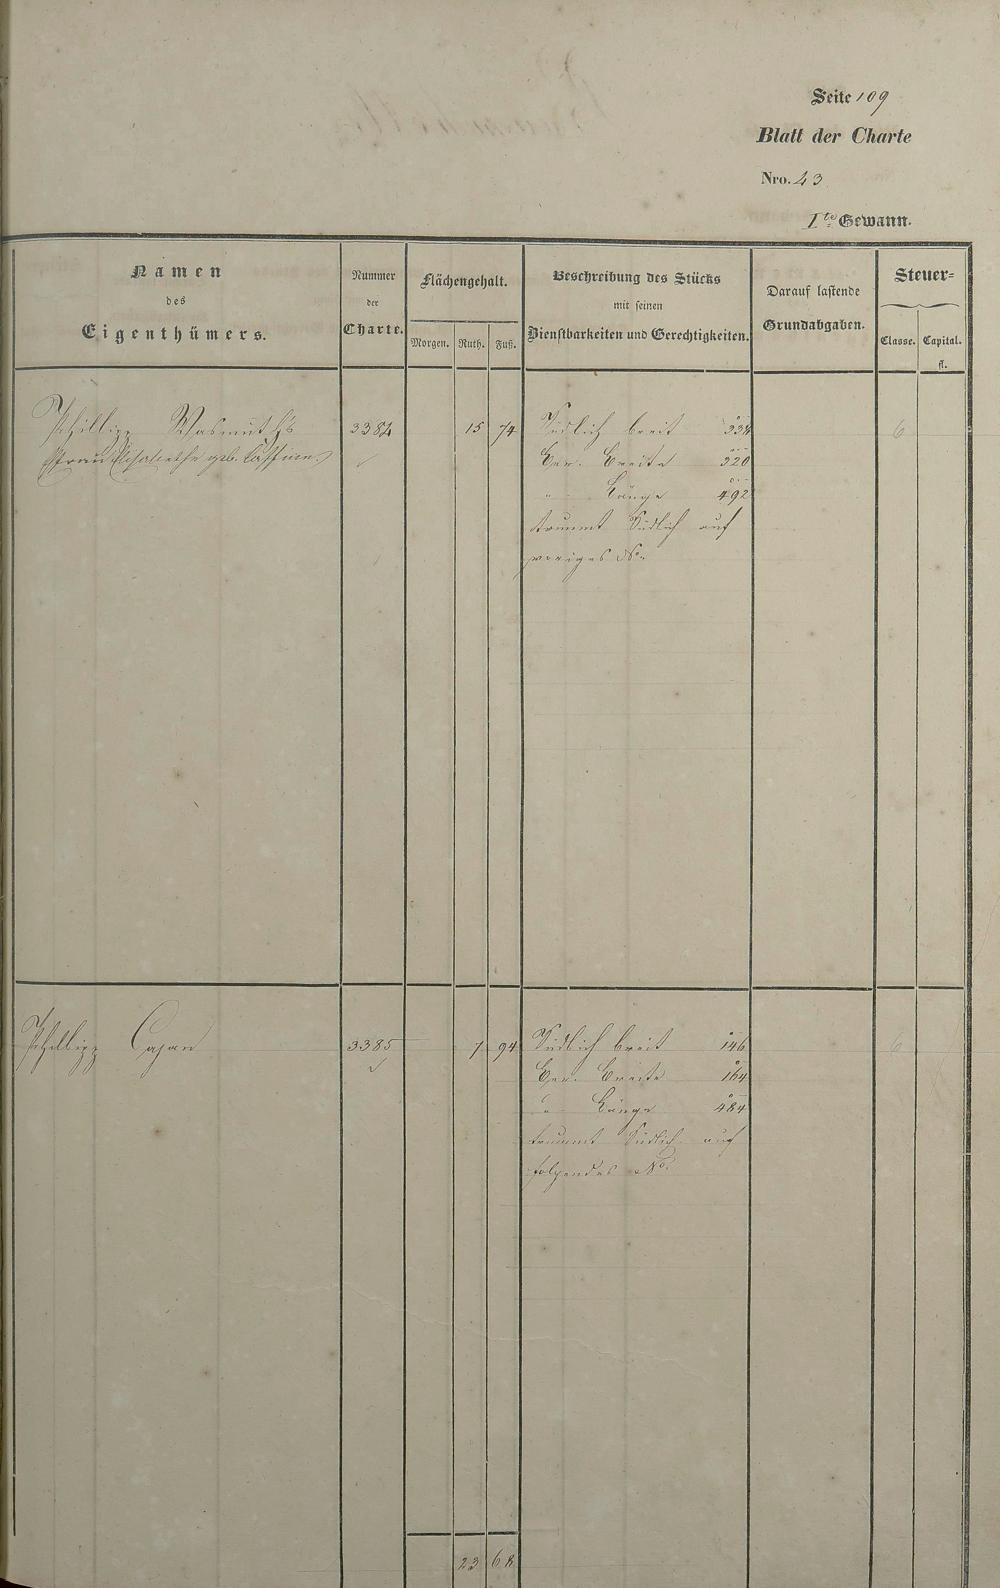 Seite 109
Blatt der Charte
Nro. 43
I te Gewann.
Namen
des
Eigenthümers.
Nummer
der
Charte.
Flächengehalt.
Morgen. Ruth. Fuß.
Beschreibung des Stücks
mit seinen
Dienstbarkeiten und Gerechtigkeiten.
Darauf lastende
Grundabgaben.
Steuer-
Classe. Capital.
fl.
Philipp Wasmuth's 3384 15 74 Südlich breit 334 6
Frau Elisabethe geb. Ger. Breite 320
" Länge 492
trummt Südlich auf
voriges No
Philipp Cajan 3385 7 94 Südlich breit 146 6
Ger. Breite 164
" Länge 484
trummt Südlich auf
folgendes No
23 68